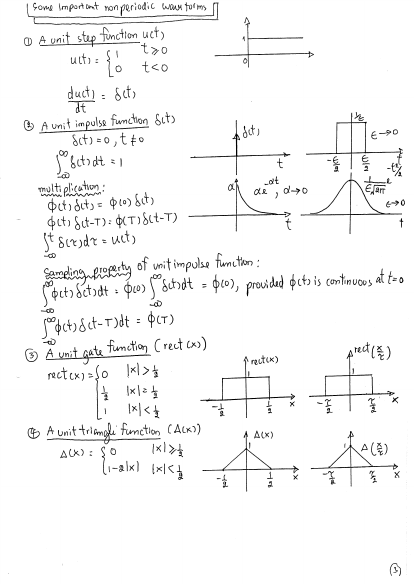 Some important nonperiodic waveforms
① A unit step function u(t)
u(t) = { 1 t ≥ 0
0 t < 0
1
0
du(t)/dt = δ(t)
② A unit impulse function δ(t)
δ(t) = 0, t ≠ 0
∫_{-∞}^{∞} δ(t)dt = 1
δ(t)
t
1/ε
ε→0
-ε/2 ε/2
multiplication:
φ(t)δ(t) = φ(0)δ(t)
φ(t)δ(t-T) = φ(T)δ(t-T)
∫_{-∞}^{t} δ(τ)dτ = u(t)
α
αe^{-αt}, α→0
t
ε→0
Sampling property of unit impulse function:
∫_{-∞}^{∞} φ(t)δ(t)dt = φ(0)∫_{-∞}^{∞} δ(t)dt = φ(0), provided φ(t) is continuous at t=0
∫_{-∞}^{∞} φ(t)δ(t-T)dt = φ(T)
③ A unit gate function (rect(x))
rect(x) = { 0 |x| > 1/2
1/2 |x| = 1/2
1 |x| < 1/2
rect(x)
1
-1/2 1/2 x
rect(x/τ)
1
-τ/2 τ/2 x
④ A unit triangle function (Δ(x))
Δ(x) = { 0 |x| ≥ 1/2
1-2|x| |x| < 1/2
Δ(x)
1
-1/2 1/2 x
Δ(x/τ)
1
-τ/2 τ/2 x
③